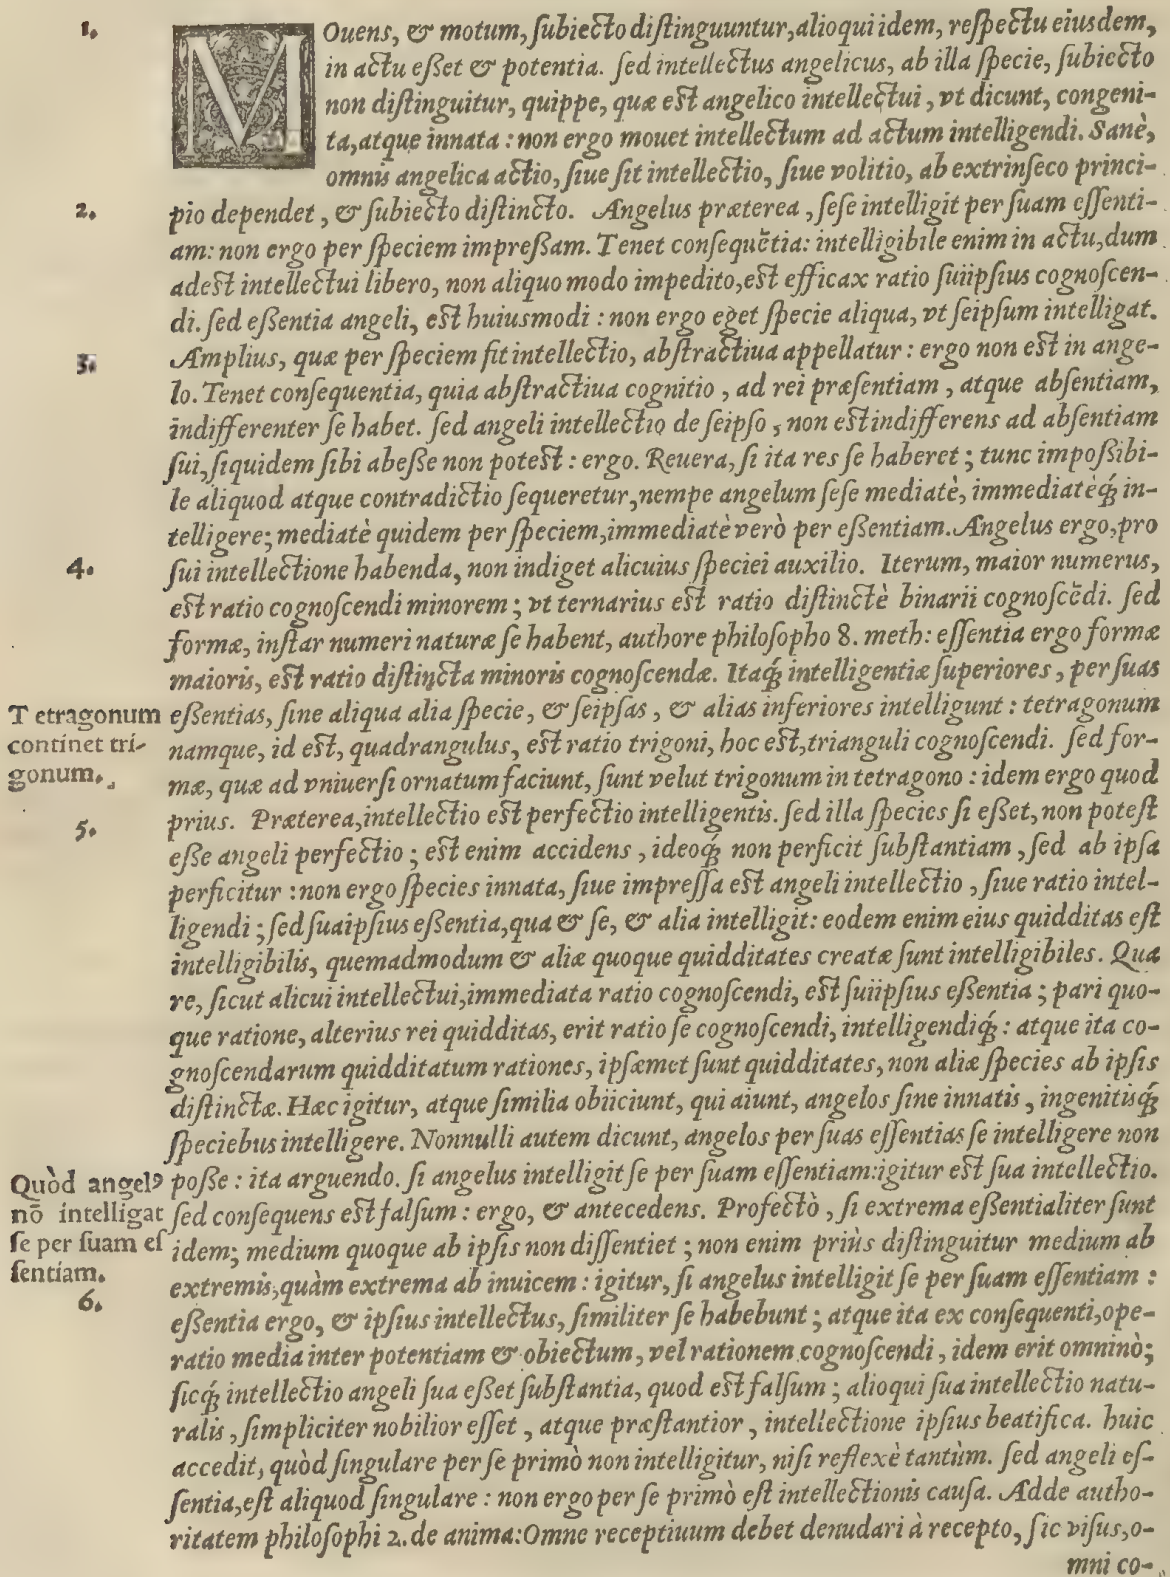 1.
MOuens, & motum, ſubiecto diſtinguuntur, alioqui idem, reſpectu eiusdem,
in actu eßet & potentia. ſed intellectus angelicus, ab illa ſpecie, ſubiecto
non diſtinguitur, quippe, quæ eſt angelico intellectui, vt dicunt, congeni-
ta, atque innata: non ergo mouet intellectum ad actum intelligendi. Sanè,
omnis angelica actio, ſiue ſit intellectio, ſiue volitio, ab extrinſeco princi-
2.
pio dependet, & ſubiecto diſtincto. Angelus præterea, ſeſe intelligit per ſuam eſſenti-
am: non ergo per ſpeciem impreßam. Tenet conſequẽtia: intelligibile enim in actu, dum
adeſt intellectui libero, non aliquo modo impedito, eſt efficax ratio ſuiipſius cognoſcen-
di. ſed eßentia angeli, eſt huiusmodi: non ergo eget ſpecie aliqua, vt ſeipſum intelligat.
3.
Amplius, quæ per ſpeciem fit intellectio, abſtractiua appellatur: ergo non eſt in ange-
lo. Tenet conſequentia, quia abſtractiua cognitio, ad rei præſentiam, atque abſentiam,
indifferenter ſe habet. ſed angeli intellectio de ſeipſo, non eſt indifferens ad abſentiam
ſui, ſiquidem ſibi abeße non poteſt: ergo. Reuera, ſi ita res ſe haberet; tunc impoßibi-
le aliquod atque contradictio ſequeretur, nempe angelum ſeſe mediatè, immediatèq́; in-
telligere; mediatè quidem per ſpeciem, immediatè verò per eßentiam. Angelus ergo, pro
4.
ſui intellectione habenda, non indiget alicuius ſpeciei auxilio. Iterum, maior numerus,
eſt ratio cognoſcendi minorem; vt ternarius eſt ratio diſtinctè binarii cognoſcẽdi. ſed
formæ, inſtar numeri naturæ ſe habent, authore philoſopho 8. meth: eſſentia ergo formæ
maioris, eſt ratio diſtincta minoris cognoſcendæ. Itaq́; intelligentiæ ſuperiores, per ſuas
Tetragonum
continet tri-
gonum.
eßentias, ſine aliqua alia ſpecie, & ſeipſas, & alias inferiores intelligunt: tetragonum
namque, id eſt, quadrangulus, eſt ratio trigoni, hoc eſt, trianguli cognoſcendi. ſed for-
mæ, quæ ad vniuerſi ornatum faciunt, ſunt velut trigonum in tetragono: idem ergo quod
5.
prius. Præterea, intellectio eſt perfectio intelligentis. ſed illa ſpecies ſi eßet, non poteſt
eße angeli perfectio; eſt enim accidens, ideoq́; non perficit ſubſtantiam, ſed ab ipſa
perficitur: non ergo ſpecies innata, ſiue impreſſa eſt angeli intellectio, ſiue ratio intel-
ligendi; ſed ſuaipſius eßentia, qua & ſe, & alia intelligit: eodem enim eius quidditas eſt
intelligibilis, quemadmodum & aliæ quoque quidditates creatæ ſunt intelligibiles. Qua
re, ſicut alicui intellectui, immediata ratio cognoſcendi, eſt ſuiipſius eßentia; pari quo-
que ratione, alterius rei quidditas, erit ratio ſe cognoſcendi, intelligendiq́;: atque ita co-
gnoſcendarum quidditatum rationes, ipſæmet ſunt quidditates, non aliæ ſpecies ab ipſis
diſtinctæ. Hæc igitur, atque ſimilia obiiciunt, qui aiunt, angelos ſine innatis, ingenitisq́;
ſpeciebus intelligere. Nonnulli autem dicunt, angelos per ſuas eſſentias ſe intelligere non
Quòd angelꝰ
nō intelligat
ſe per ſuam eſ
ſentiam.
6.
poße: ita arguendo. ſi angelus intelligit ſe per ſuam eſſentiam: igitur eſt ſua intellectio.
ſed conſequens eſt falſum: ergo, & antecedens. Profectò, ſi extrema eßentialiter ſunt
idem; medium quoque ab ipſis non diſſentiet; non enim priùs diſtinguitur medium ab
extremis, quàm extrema ab inuicem: igitur, ſi angelus intelligit ſe per ſuam eſſentiam:
eßentia ergo, & ipſius intellectus, ſimiliter ſe habebunt; atque ita ex conſequenti, ope-
ratio media inter potentiam & obiectum, vel rationem cognoſcendi, idem erit omninò;
ſicq́; intellectio angeli ſua eßet ſubſtantia, quod eſt falſum; alioqui ſua intellectio natu-
ralis, ſimpliciter nobilior eſſet, atque præſtantior, intellectione ipſius beatifica. huic
accedit, quòd ſingulare per ſe primò non intelligitur, niſi reflexè tantùm. ſed angeli eſ-
ſentia, eſt aliquod ſingulare: non ergo per ſe primò eſt intellectionis cauſa. Adde autho-
ritatem philoſophi 2. de anima: Omne receptiuum debet denudari à recepto, ſic viſus, o-
mni co-